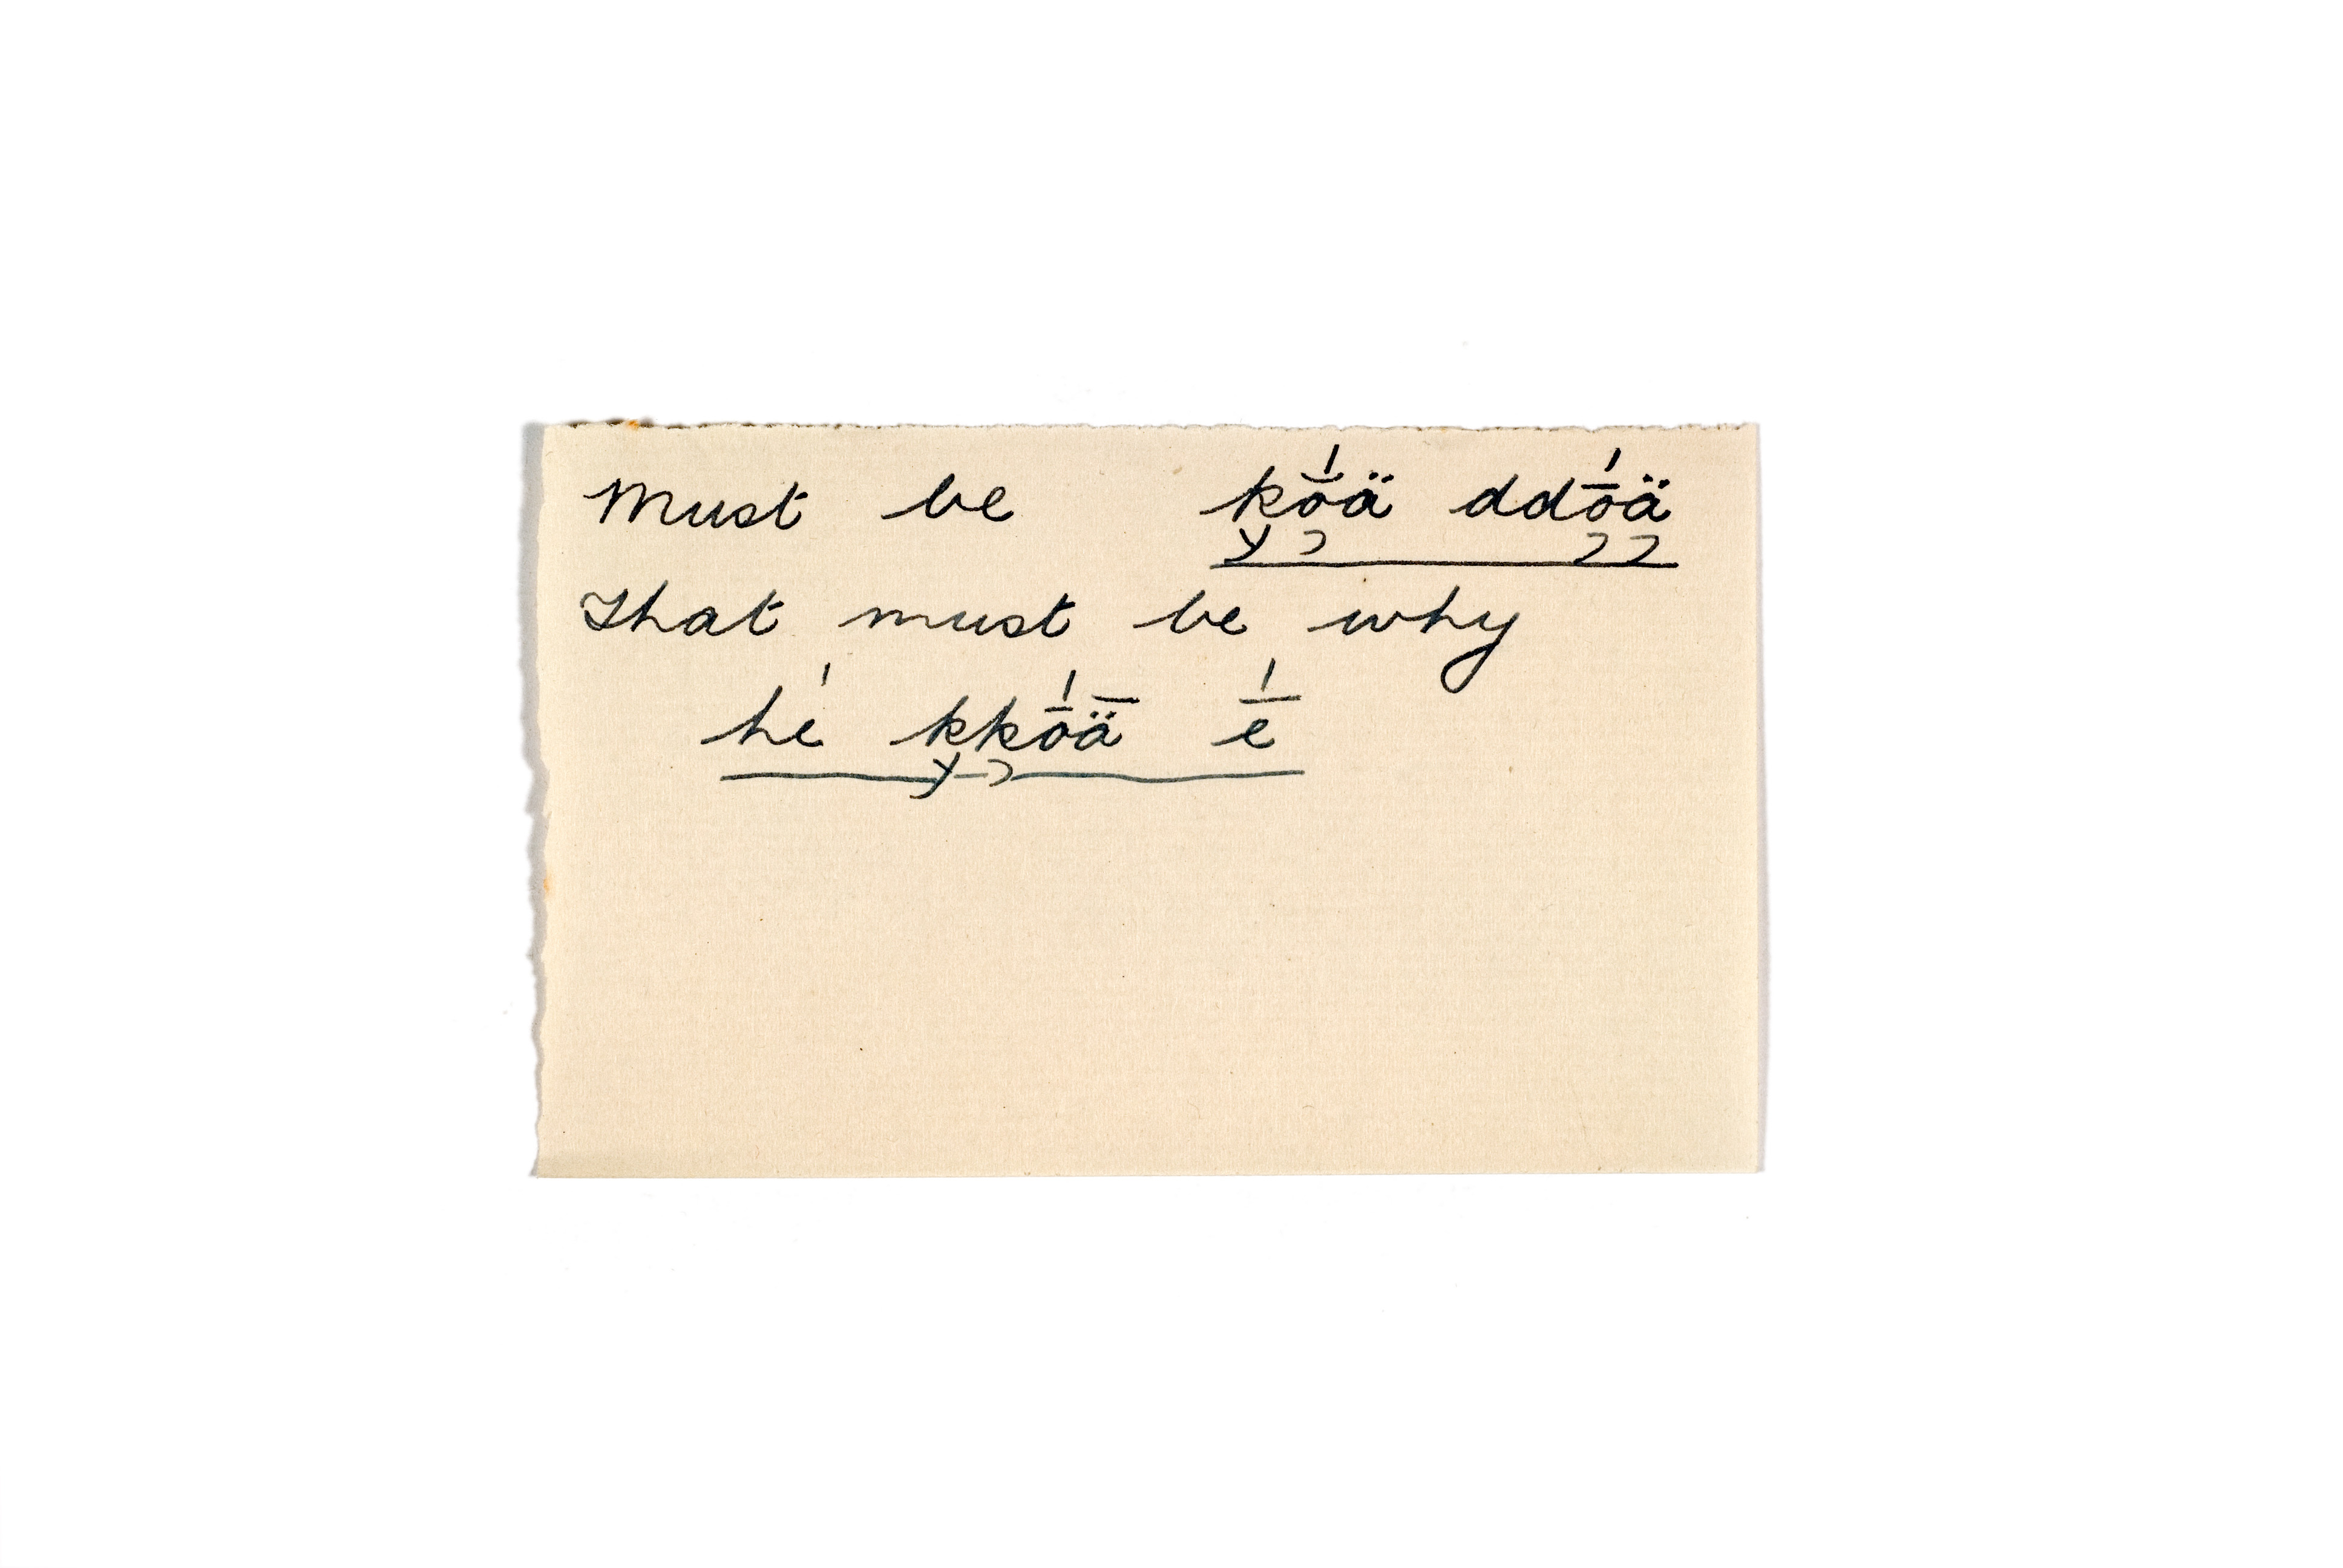 Must be kṓä ddṓä
That must be why
hé kkṓǟ ḗ